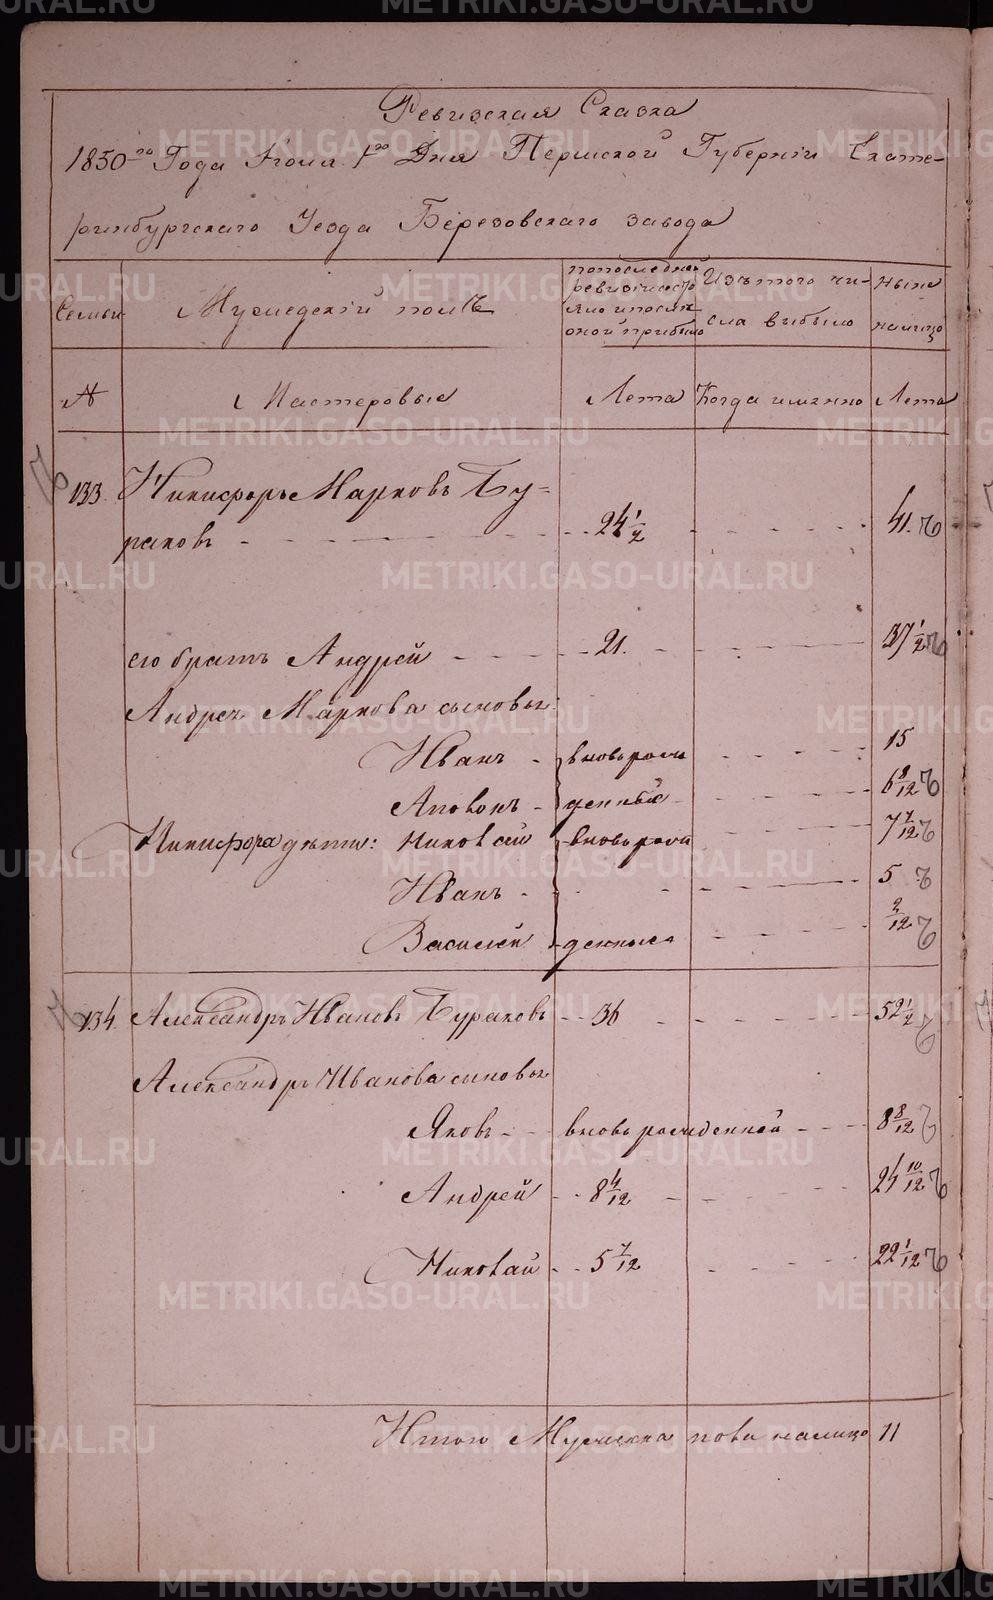 Ревизская Сказка
1850го Года Июня 1го Дня Пермской Губернiи Екате-
ринбургскаго Уезда Березовскаго завода
Семьи
Мужедескiй полъ
попоследней
ревизiисосто
яло ипослѣ
оной прибыло
Изътого чи-
сла выбыло
ныне
налицо
№
Мастеровые
Лета
Когда именно
Лета
133. Никифоръ Марковъ Бу=
раковъ 24 1/2 41.
его братъ Андрей 21. 37 1/2
Андрея Маркова сыновья:
Иванъ вновь рож 15
Аполонъ денный 6 8/12
Никифора дети: Николай вновь рож 7 7/12
Иванъ 5
Василей денные 2/12
134. Александръ Ивановъ Бураковъ 36 52 1/2
Александръ Иванова сыновья
Яковъ вновь рожденной 8 8/12
Андрей 8 4/12 24 10/12
Николай 5 7/12 22 1/12
Итого Мужеска пола налицо 11
METRIKI.GASO-URAL.RU